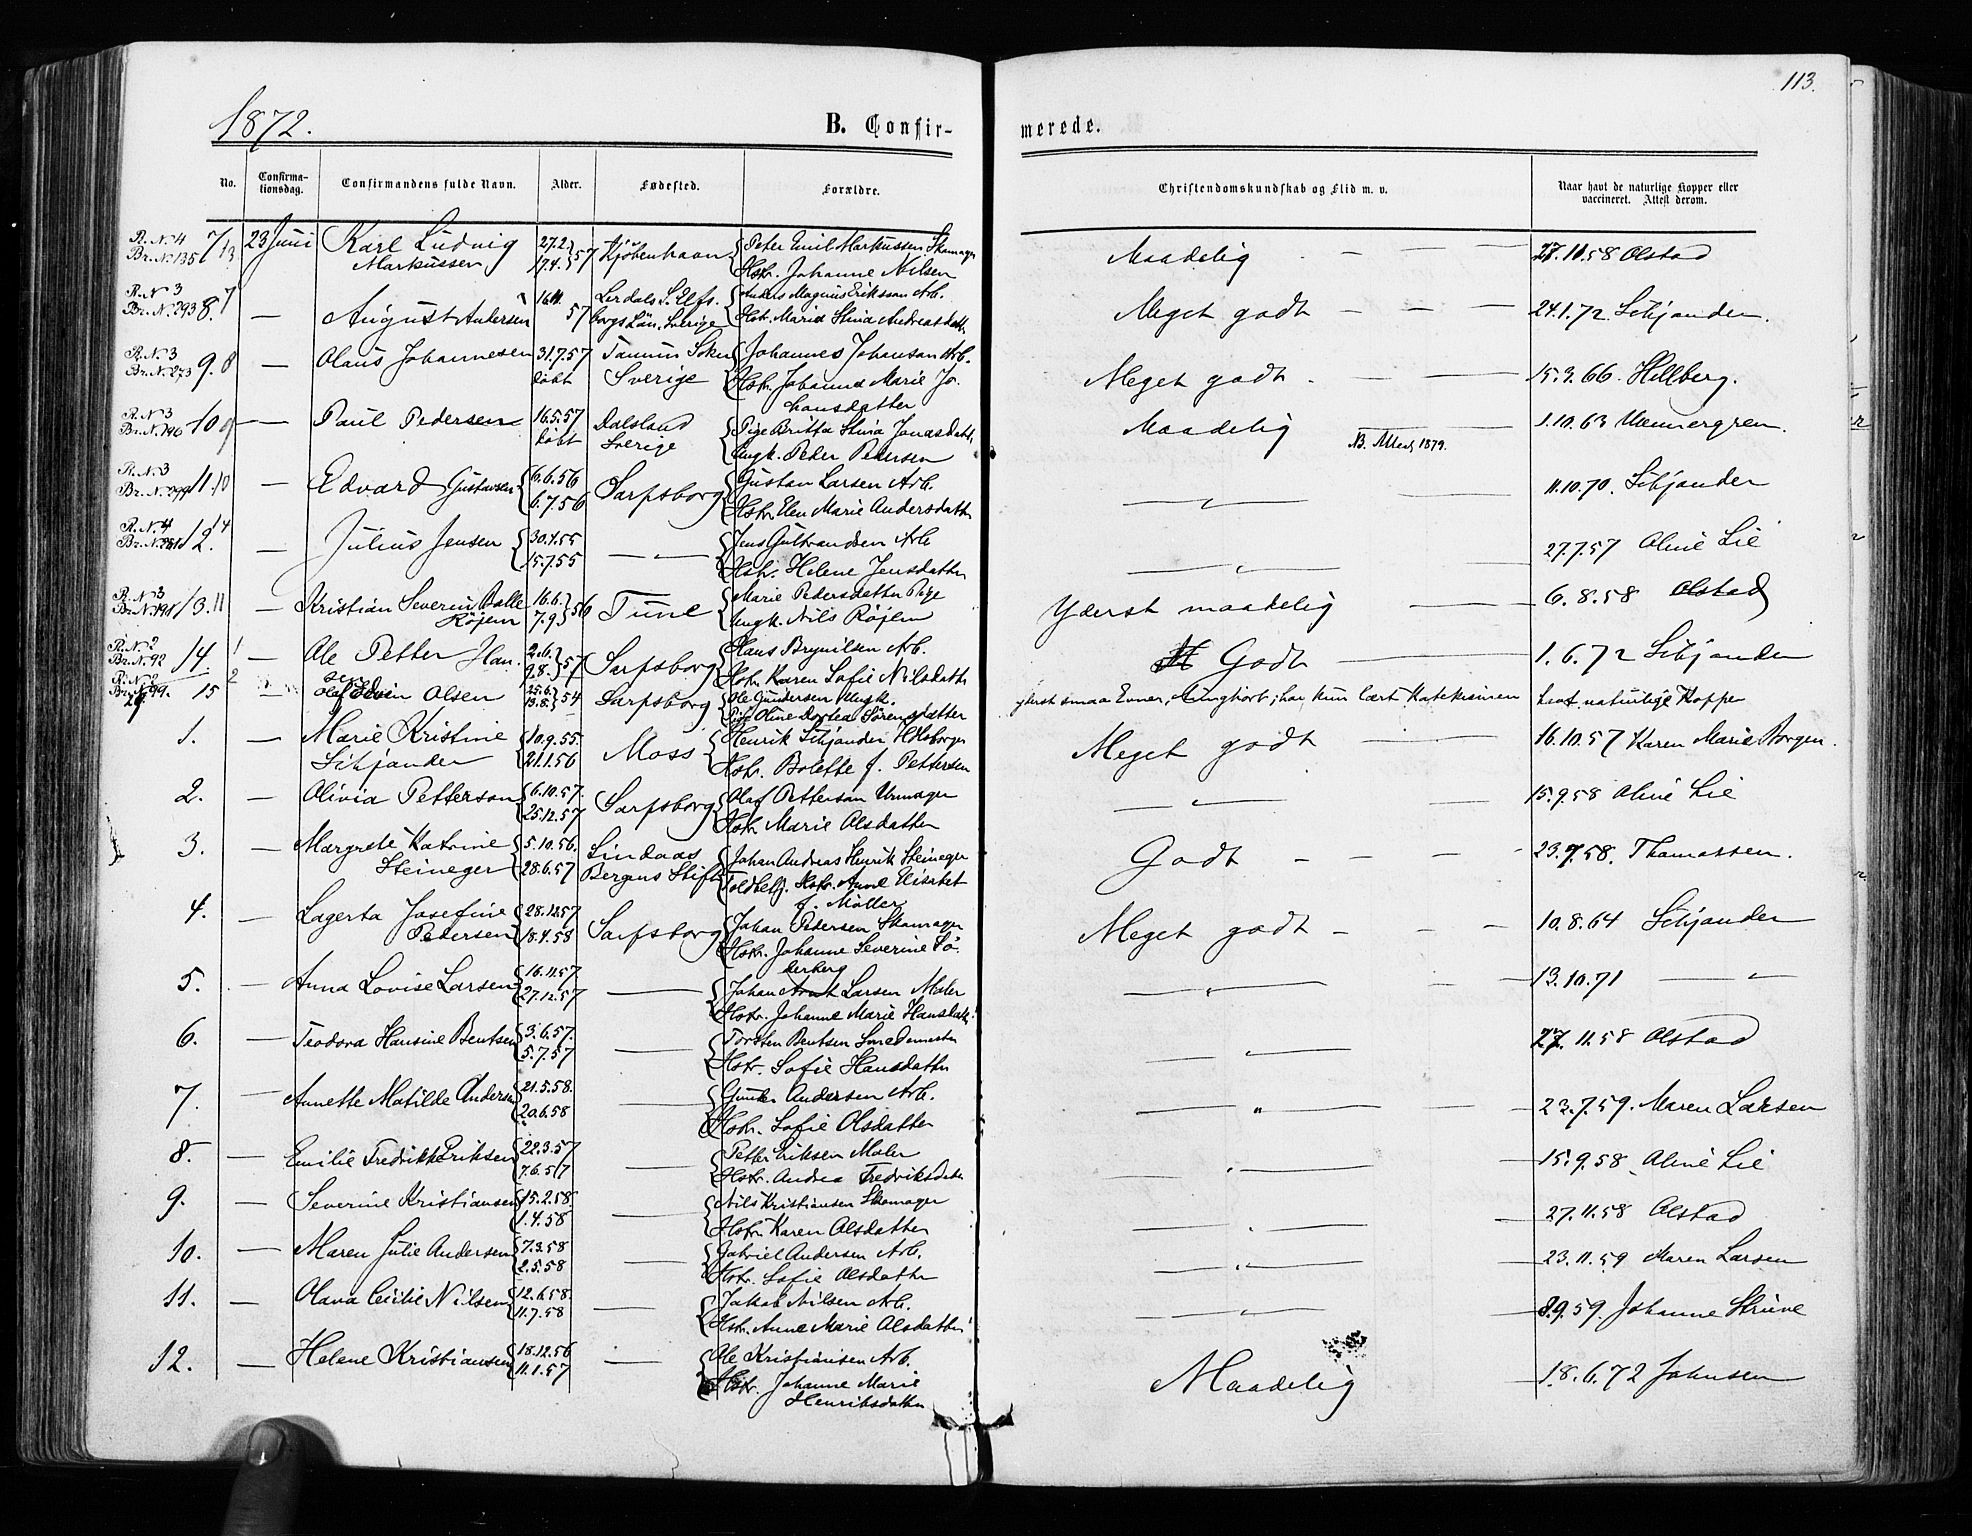 113.
1872.
B. Confir-
merede.
No.
Confirma-
tionsdag.
Confirmandens fulde Navn.
Alder.
Fødested.
Forældre.
Christendomskundskab og Flid m. v.
Naar havt de naturlige Kopper eller
vaccineret. Attest derom.
R. N. 4 7 23 Juni Karl Ludvig 27.2. 57 Kjøbenhavn Peter Emil Markussen Skomager Maadelig 27.11.58 Olstad
Br. N. 135 13 Markussen 17.4. Hstr. Johanne Nilsen
R. N. 3 8 7 — August Andersen 57 Lerdals S. Elfs- Anders Magnus Eriksson Arb. Meget godt 24.1.72 Sitjander.
Br. N. 293 borgs Län. Sverige Hstr. Maria Stina Andreasdatt.
R. N. 3 9. 8 — Olaus Johannesen 31.7.57 Tanum Sokn Johannes Johanson Arb. Meget godt 15.3.66. Hellberg.
Br. N. 273 døbt Sverige Hstr. Johanna Marie Jo-
hansdatter
R. N. 3 10 9 — Paul Pedersen 16.5.57 Dalsland Pige Britta Stina Jonasdatt. Maadelig 1.10.63 Wennergren.
Br. N. 196 døbt Sverige Ungk. Peder Pedersen NB. Attest, 1879.
R. N. 3 11. 10 — Edvard Gustavsen 6.6.56 Sarpsborg Gustav Larsen Arb. — " — 11.10.70. Sitjander
Br. N. 299 6.7.56 Hstr. Elen Marie Andersdatter
R. N. 4 12. 14 — Julius Jensen 30.4.55 — " — Jens Gulbrandsen Arb — " — 27.7.57 Oline Lie
15.7.55 Hstr. Helene Jensdatter
R. N. 3 13. 11 — Kristian Severin Balle 16.6. 56 Tune Marie Pedersdatter Pige Yderst maadelig 6.8.58 Olstad
Br. N. 191 Røjem 7.9. Ungk. Nils Røjem
R. N. 2 14. 1 — Ole Petter Han- 2.6. 57 Sarpsborg Hans Brynilsen Arb. Godt 1.6.72 Sitjander
Br. N. 92 2 sen 9.8. Hstr. Karen Sofie Nilsdatter
Br. N. 99. 15 — Olaf Edvin Olsen 25.6. 54 Sarpsborg Ole Gundersen Ungk. yderst smaa Evner, tunghørt; har kun lært Katekismen havt naturlige Kopper
13.8. Pige Oline Dortea Sørensdatter
1. — Marie Kristine 10.9.55. Moss Henrik Sitjander Meget godt 16.10.57 Karen Marie Borgen.
Sitjander 21.1.56 Hstr. Bolette f. Pettersen
2. — Olivia Petterson 6.10.57. Sarpsborg Olaf Petterson Urmager — " — 15.9.58 Oline Lie
25.12.57 Hstr. Marie Olsdatter
3. — Margrete Katrine 5.10.56. Lindaas Johan Andreas Henrik Steineger Godt 23.9.58. Thomassen.
Steineger 28.6.57 Bergens Stift Toldbetj. Hstr. Anne Elisabet
f. Møller
4. — Lagerta Josefine 28.12.57 Sarpsborg Johan Pedersen Skomager Meget godt 10.8.64 Sitjander
Pedersen 18.4.58 Hstr. Johanne Severine Sø-
derberg
5. — Anna Lovise Larsen 16.11.57. — Johan Arnt Larsen Maler — " — 13.10.71 — " —
27.12.57 Hstr. Johanne Marie Hansdatt.
6. — Teodora Hansine Bentsen 3.6.57. — Torsten Bentsen Smedemester — " — 27.11.58 Olstad
5.7.57 Hstr. Sofie Hansdatter
7. — Annette Matilde Andersen 21.5.58. — Gunder Andersen Arb. — " — 23.7.59. Maren Larsen
20.6.58 Hstr. Sofie Olsdatter
8. — Emilie Fredrikke Eriksen 22.3.57 — Petter Eriksen Maler — " — 15.9.58 Oline Lie
7.6.57 Hstr. Andrea Fredriksdatter
9. — Severine Kristiansen 15.2.58. — Nils Kristiansen Skomager — " — 27.11.58 Olstad
1.4.58 Hstr. Karen Olsdatter
10. — Maren Julie Andersen 7.3.58 — Gabriel Andersen Arb. — " — 23.11.59 Maren Larsen
2.5.58 Hstr. Sofie Olsdatter
11. — Olava Cecilie Nilsen 12.6.58. — Jakob Nilsen Arb. — " — 8.9.59 Johanne Struve
11.7.58 Hstr. Anne Marie Olsdatter
12. — Helene Kristiansen 18.12.56 — Ole Kristiansen Arb. Maadelig 18.6.72 Johnsen
11.1.57 Hstr. Johanne Marie
Henriksdatter